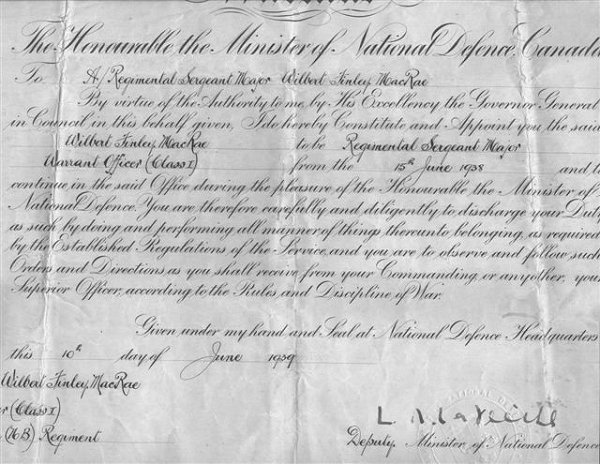 The Honourable, the Minister of National Defence, Canada
To A/ Regimental Sergeant Major Wilbert Finley MacRae
By virtue of the Authority to me, by His Excellency the Governor General
in Council in this behalf given, I do hereby Constitute and Appoint you the said
Wilbert Finley MacRae to be Regimental Sergeant Major
Warrant Officer (Class I) from the 15th June 1938 and to
continue in the said Office during the pleasure of the Honourable the Minister of
National Defence. You are therefore carefully and diligently to discharge your Duty
as such by doing and performing all manner of things thereunto belonging, as required
by the Established Regulations of the Service, and you are to observe and follow such
Orders and Directions as you shall receive from your Commanding, or any other, your
Superior Officer, according to the Rules, and Discipline of War.
Given under my hand and Seal at National Defence Headquarters
this 10th day of June 1939
Wilbert Finley MacRae
(Class I)
(N.B) Regiment
Deputy Minister of National Defence